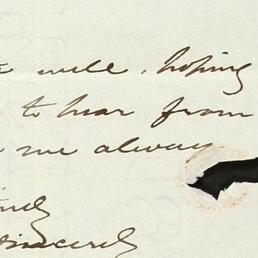 will, hoping
to hear from
me always
Sincerely